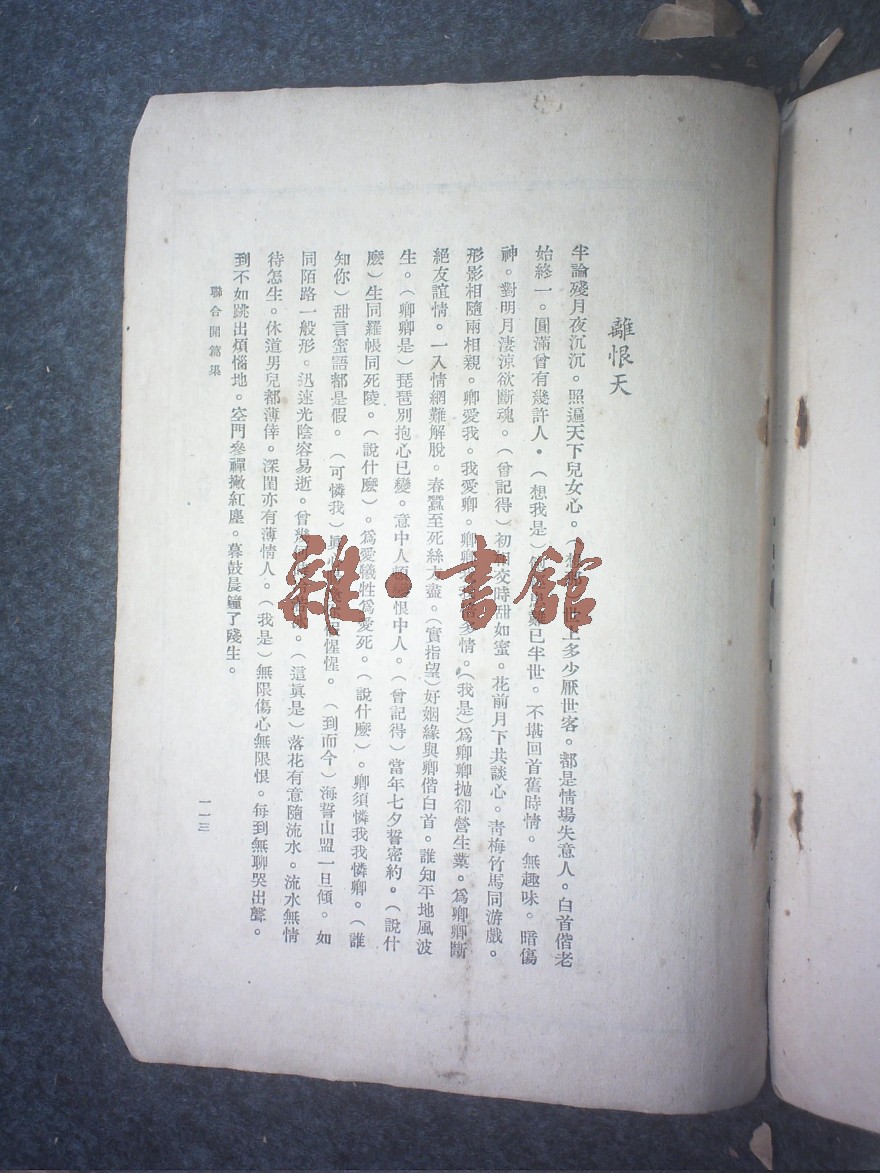 離恨天
半論殘月夜沉沉。照遍天下兒女心。(想世上多少厭世客。都是情場失意人。白首偕老
始終一。圓滿曾有幾許人。(想我是)已半世。不堪回首舊時情。無趣味。暗傷
神。對明月淒涼欲斷魂。(曾記得)初相交時甜如蜜。花前月下共談心。靑梅竹馬同游戲。
形影相隨兩相親。卿愛我。我愛卿。卿卿多情。(我是)爲卿卿拋卻營生業。爲卿卿斷
絕友誼情。一入情網難解脫。春蠶至死絲未盡。(實指望)好姻緣與卿偕白首。誰知平地風波
生。(卿卿是)琵琶別抱心已變。意中人恨中人。(曾記得)當年七夕誓密約。(說什
麼)生同羅帳同死陵。(說什麼)。爲愛犧牲爲愛死。(說什麼)。卿須憐我我憐卿。(誰
知你)甜言蜜語都是假。(可憐我)惺惺。(到而今)海誓山盟一旦傾。如
同陌路一般形。迅速光陰容易逝。曾幾(這眞是)落花有意隨流水。流水無情
待怎生。休道男兒都薄倖。深閨亦有薄情人。(我是)無限傷心無限恨。每到無聊哭出聲。
到不如跳出煩惱地。空門參禪撇紅塵。暮鼓晨鐘了殘生。
聯合開篇集
一一三
雜·書館